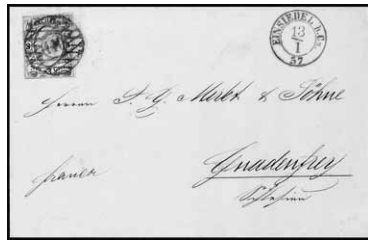 EINSIEDEL b. Ch.
13
I
57
Herren J. G. Merkt & Söhne
franco
Gnadenfrey
Schlesien